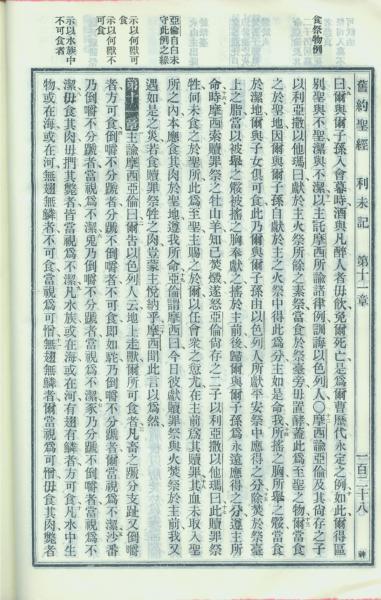 舊約聖經　利未記　第十一章　一百二十八
食祭物例
亞倫自白未守此例之緣
示以何獸可食
示以何獸不可食
示以水族中不可食者
曰爾與爾子孫入會幕時酒與凡醉人者毋飲免爾死亡是爲爾曹歷代永定之例如此爾得區
別聖與不聖潔與不潔以主託摩西所諭諸律例訓誨以色列人○摩西諭亞倫及其尙存之子
以利亞撒以他瑪曰獻於主火祭所餘之素祭當食於祭臺旁毋置酵蓋此爲至聖之物爾當食
之於聖地因爾與爾子孫自獻於主之火祭中得此爲分主如是命我所搖之胸所舉之骽當食
於潔地爾與子女俱可食此乃爾與爾子孫由以色列人所獻平安祭中應得之分除焚於祭臺
上之脂當以被舉之骽被搖之胸奉獻之搖於主前後歸爾與爾子孫爲永遠應得之分遵主所
命時摩西索贖罪祭之牡山羊知已焚燬遂怒亞倫尙存之二子以利亞撒以他瑪曰此贖罪祭
牲何未食之於聖所此爲至聖主賜之於爾以任會衆之愆尤在主前爲其贖罪其血未取入聖
所之內本應食其肉於聖地遵我所命亞倫謂摩西曰今日彼獻贖罪祭與火焚祭於主前我又
遇如是之災若食贖罪祭牲之肉豈蒙主悅納乎摩西聞此言以爲然
第十一章主諭摩西亞倫曰爾告以色列人云地上走獸爾所可食者凡畜之蹄分支趾又倒嚼
者方可食倒嚼不分蹄者分蹄不倒嚼者不可食卽如駝乃倒嚼不分蹄者爾當視爲不潔沙番
乃倒嚼不分蹄者當視爲不潔兎乃倒嚼不分蹄者當視爲不潔豕乃分蹄不倒嚼者當視爲不
潔毋食其肉毋捫其斃者皆當視爲不潔凡水族或在海或在河有翅有鱗者方可食凡水中生
物或在海或在河無翅無鱗者不可食當視爲可憎無翅無鱗者爾當視爲可憎毋食其肉斃者